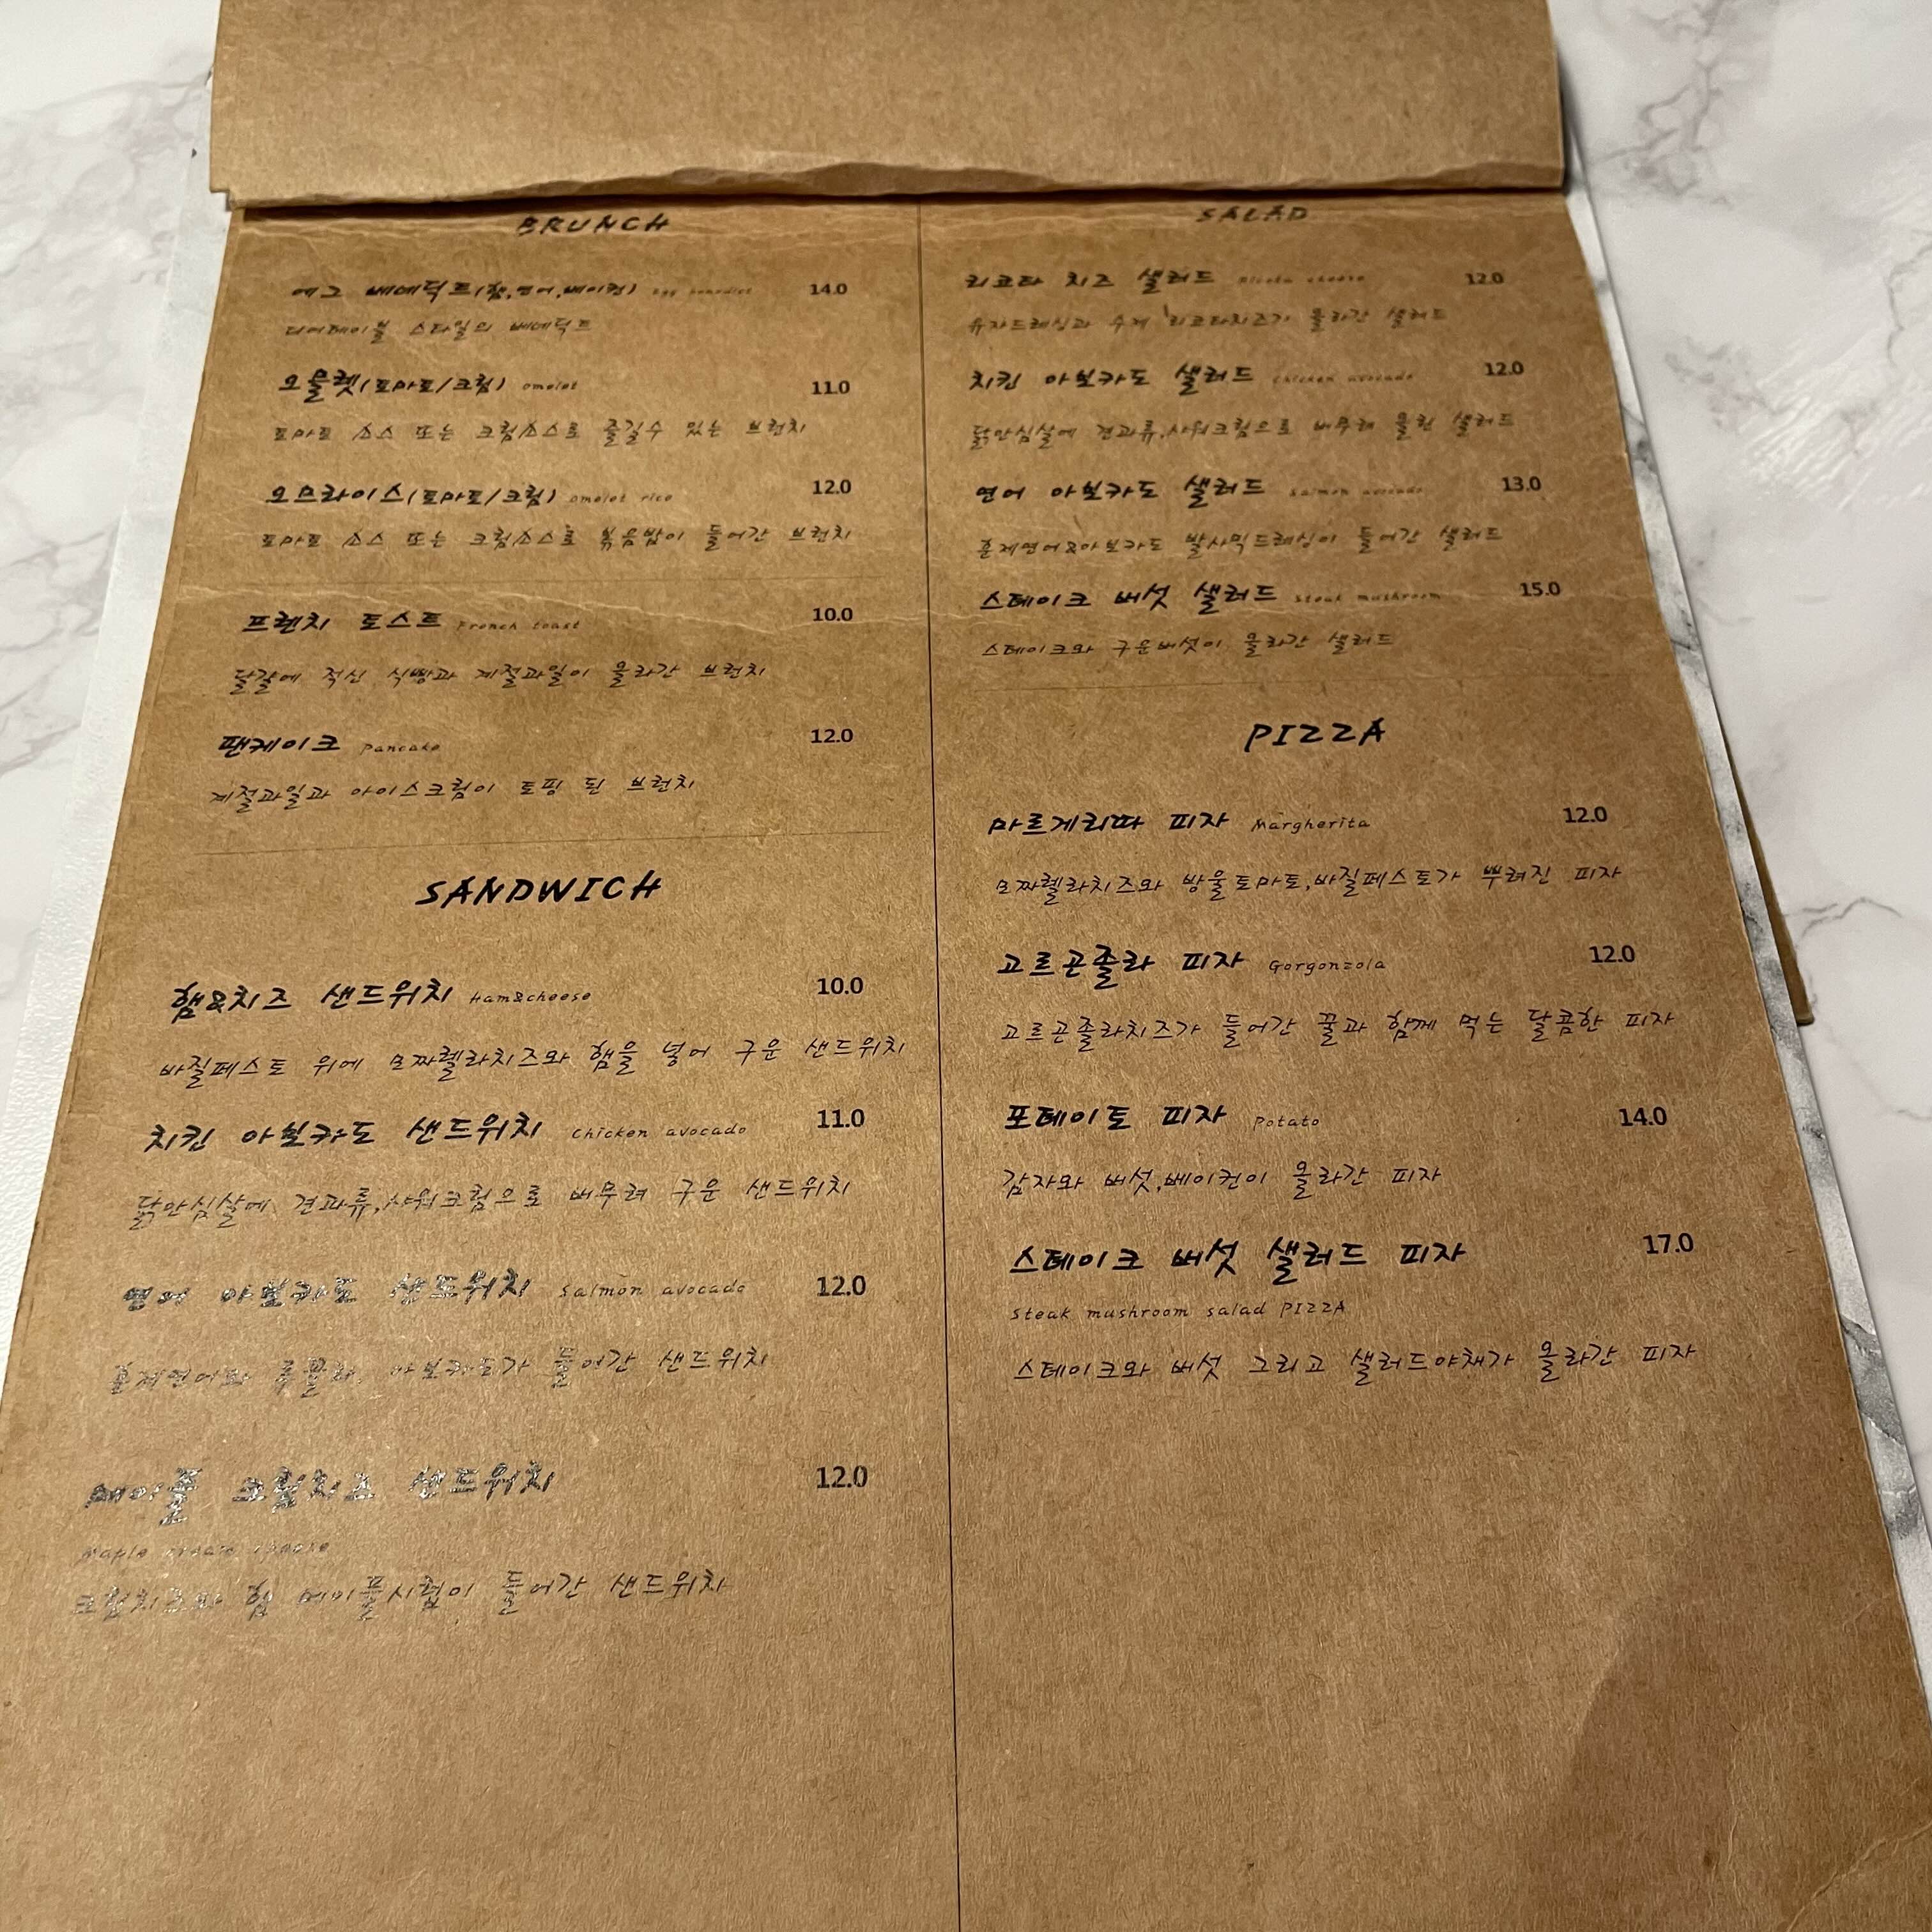 BRUNCH
에그 베네딕트(햄,연어,베이컨) Egg benedict 14.0
디어테이블 스타일의 베네딕트
오믈렛(토마토/크림) omelet 11.0
토마토 소스 또는 크림소스로 즐길수 있는 브런치
오므라이스(토마토/크림) omelet rice 12.0
토마토 소스 또는 크림소스로 볶음밥이 들어간 브런치
프렌치 토스트 French toast 10.0
달걀에 적신 식빵과 계절과일이 올라간 브런치
팬케이크 pancake 12.0
계절과일과 아이스크림이 토핑 된 브런치
SANDWICH
햄&치즈 샌드위치 Ham&cheese 10.0
바질페스토 위에 모짜렐라치즈와 햄을 넣어 구운 샌드위치
치킨 아보카도 샌드위치 Chicken avocado 11.0
닭안심살에 견과류,사워크림으로 버무려 구운 샌드위치
연어 아보카도 샌드위치 Salmon avocado 12.0
훈제연어와 루꼴라, 아보카도가 들어간 샌드위치
메이플 크림치즈 샌드위치 12.0
Maple cream cheese
크림치즈와 햄 메이플시럽이 들어간 샌드위치
SALAD
리코타 치즈 샐러드 Ricota cheese 12.0
유자드레싱과 수제 리코타치즈가 올라간 샐러드
치킨 아보카도 샐러드 Chicken avocado 12.0
닭안심살에 견과류,사워크림으로 버무려 올린 샐러드
연어 아보카도 샐러드 Salmon avocado 13.0
훈제연어&아보카도 발사믹드레싱이 들어간 샐러드
스테이크 버섯 샐러드 Steak mushroom 15.0
스테이크와 구운버섯이 올라간 샐러드
PIZZA
마르게리따 피자 Margherita 12.0
모짜렐라치즈와 방울토마토,바질페스토가 뿌려진 피자
고르곤졸라 피자 Gorgonzola 12.0
고르곤졸라치즈가 들어간 꿀과 함께 먹는 달콤한 피자
포테이토 피자 Potato 14.0
감자와 버섯,베이컨이 올라간 피자
스테이크 버섯 샐러드 피자 17.0
Steak mushroom salad PIZZA
스테이크와 버섯 그리고 샐러드야채가 올라간 피자